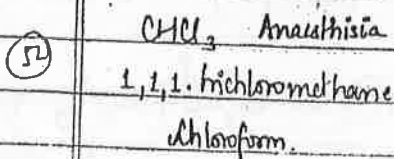 CHCl₃ Anaesthisia
Ω
1,1,1. trichloromethane
Chloroform.